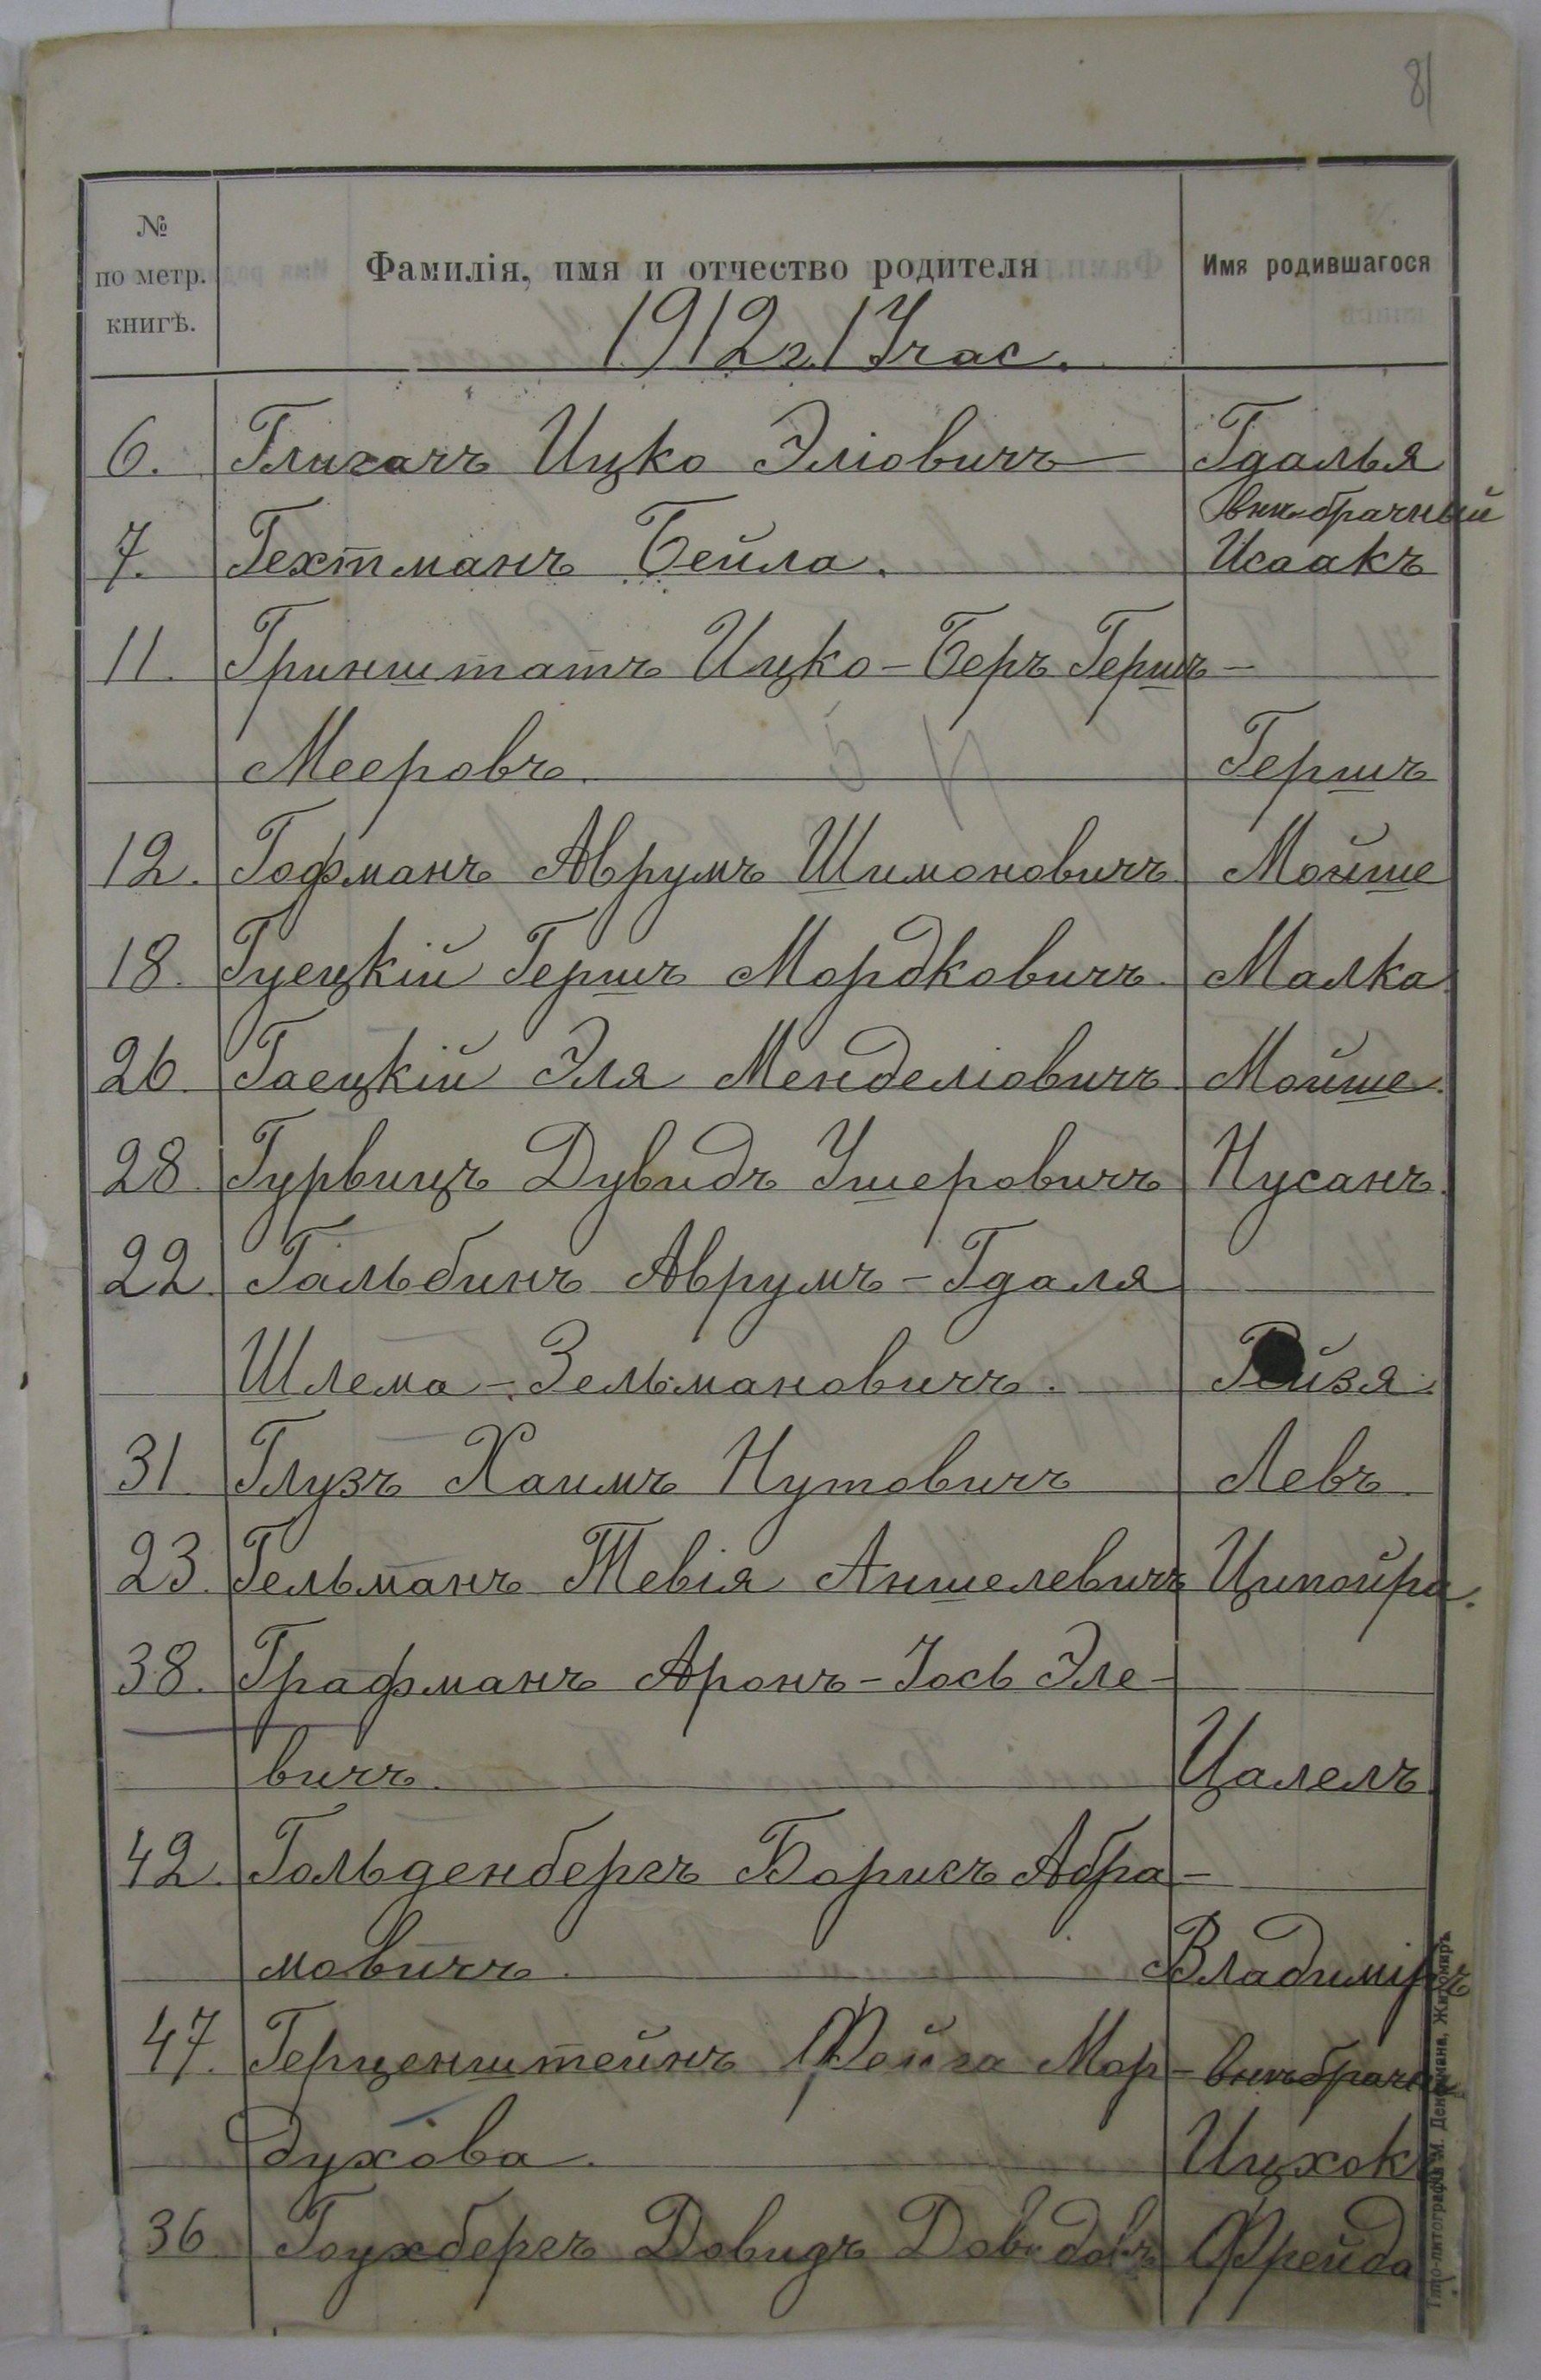 81
№ по метр. книгѣ. Фамилія, имя и отчество родителя Имя родившагося
1912 г. 1 Част.
6. Глигачъ Ицко Эліовичъ Гдалья
внибрачный
7. Гехтманъ Бейла. Исаакъ
11. Гринштатъ Ицко-Беръ Гершъ-
Мееровъ. Гершъ
12. Гофманъ Аврумъ Шимоновичъ Мойше
18. Гуецкій Гершъ Мордковичъ. Малка.
26. Гаецкій Эля Менделіовичъ. Мойше.
28. Гурвицъ Дувидъ Ушеровичъ Нусанъ.
22. Гальбинъ Аврумъ-Гдаля
Шлема-Зельмановичъ. Рейзя.
31 Глузъ Хаимъ Нутовичъ Левъ.
23. Гельманъ Тевія Аншелевичъ Ципойра.
38. Графманъ Аронъ-Іось Эле-
вичъ. Цалелъ.
42. Гольденбергъ Борисъ Абра-
мовичъ. Владиміръ
47. Герценштейнъ Фейга Мор- внибрачн
духова. Ицхокъ
36. Гоухбергъ Довидъ Давидовъ Фрейда
Типо-литографія М. Дененмана, Житомиръ